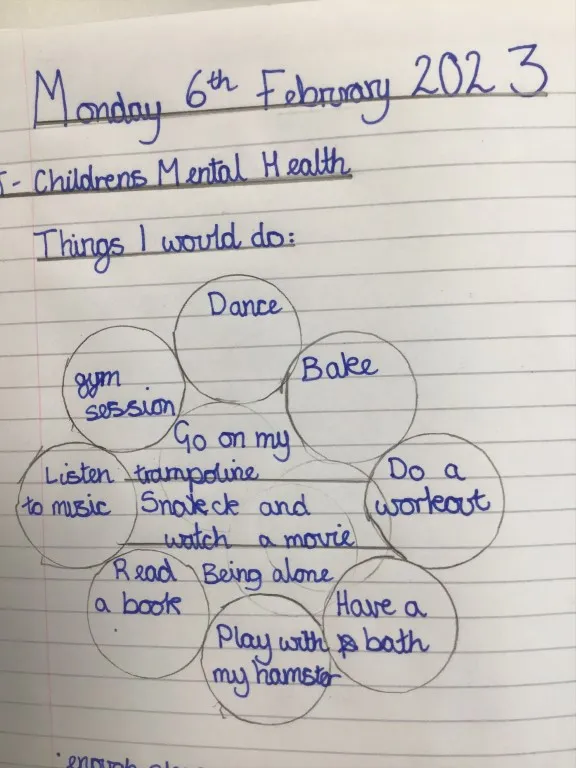 Monday 6th February 2023
- Childrens Mental Health
Things I would do:
Dance
Bake
gym
session
Go on my
trampoline
Snack and
watch a movie
Being alone
Listen
to music
Do a
workout
Read
a book
Have a
bath
Play with
my hamster
enough